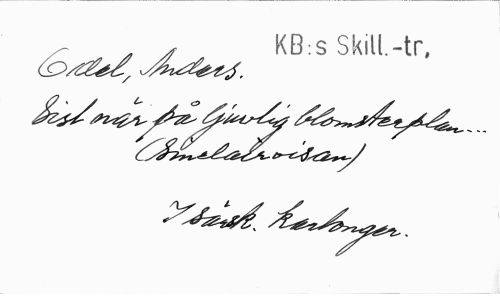 KB:s Skill.-tr,
Odel, Anders.
Sist när på ljuvlig blomsterplan...
(Sinclairvisan)
I särsk. kartonger.